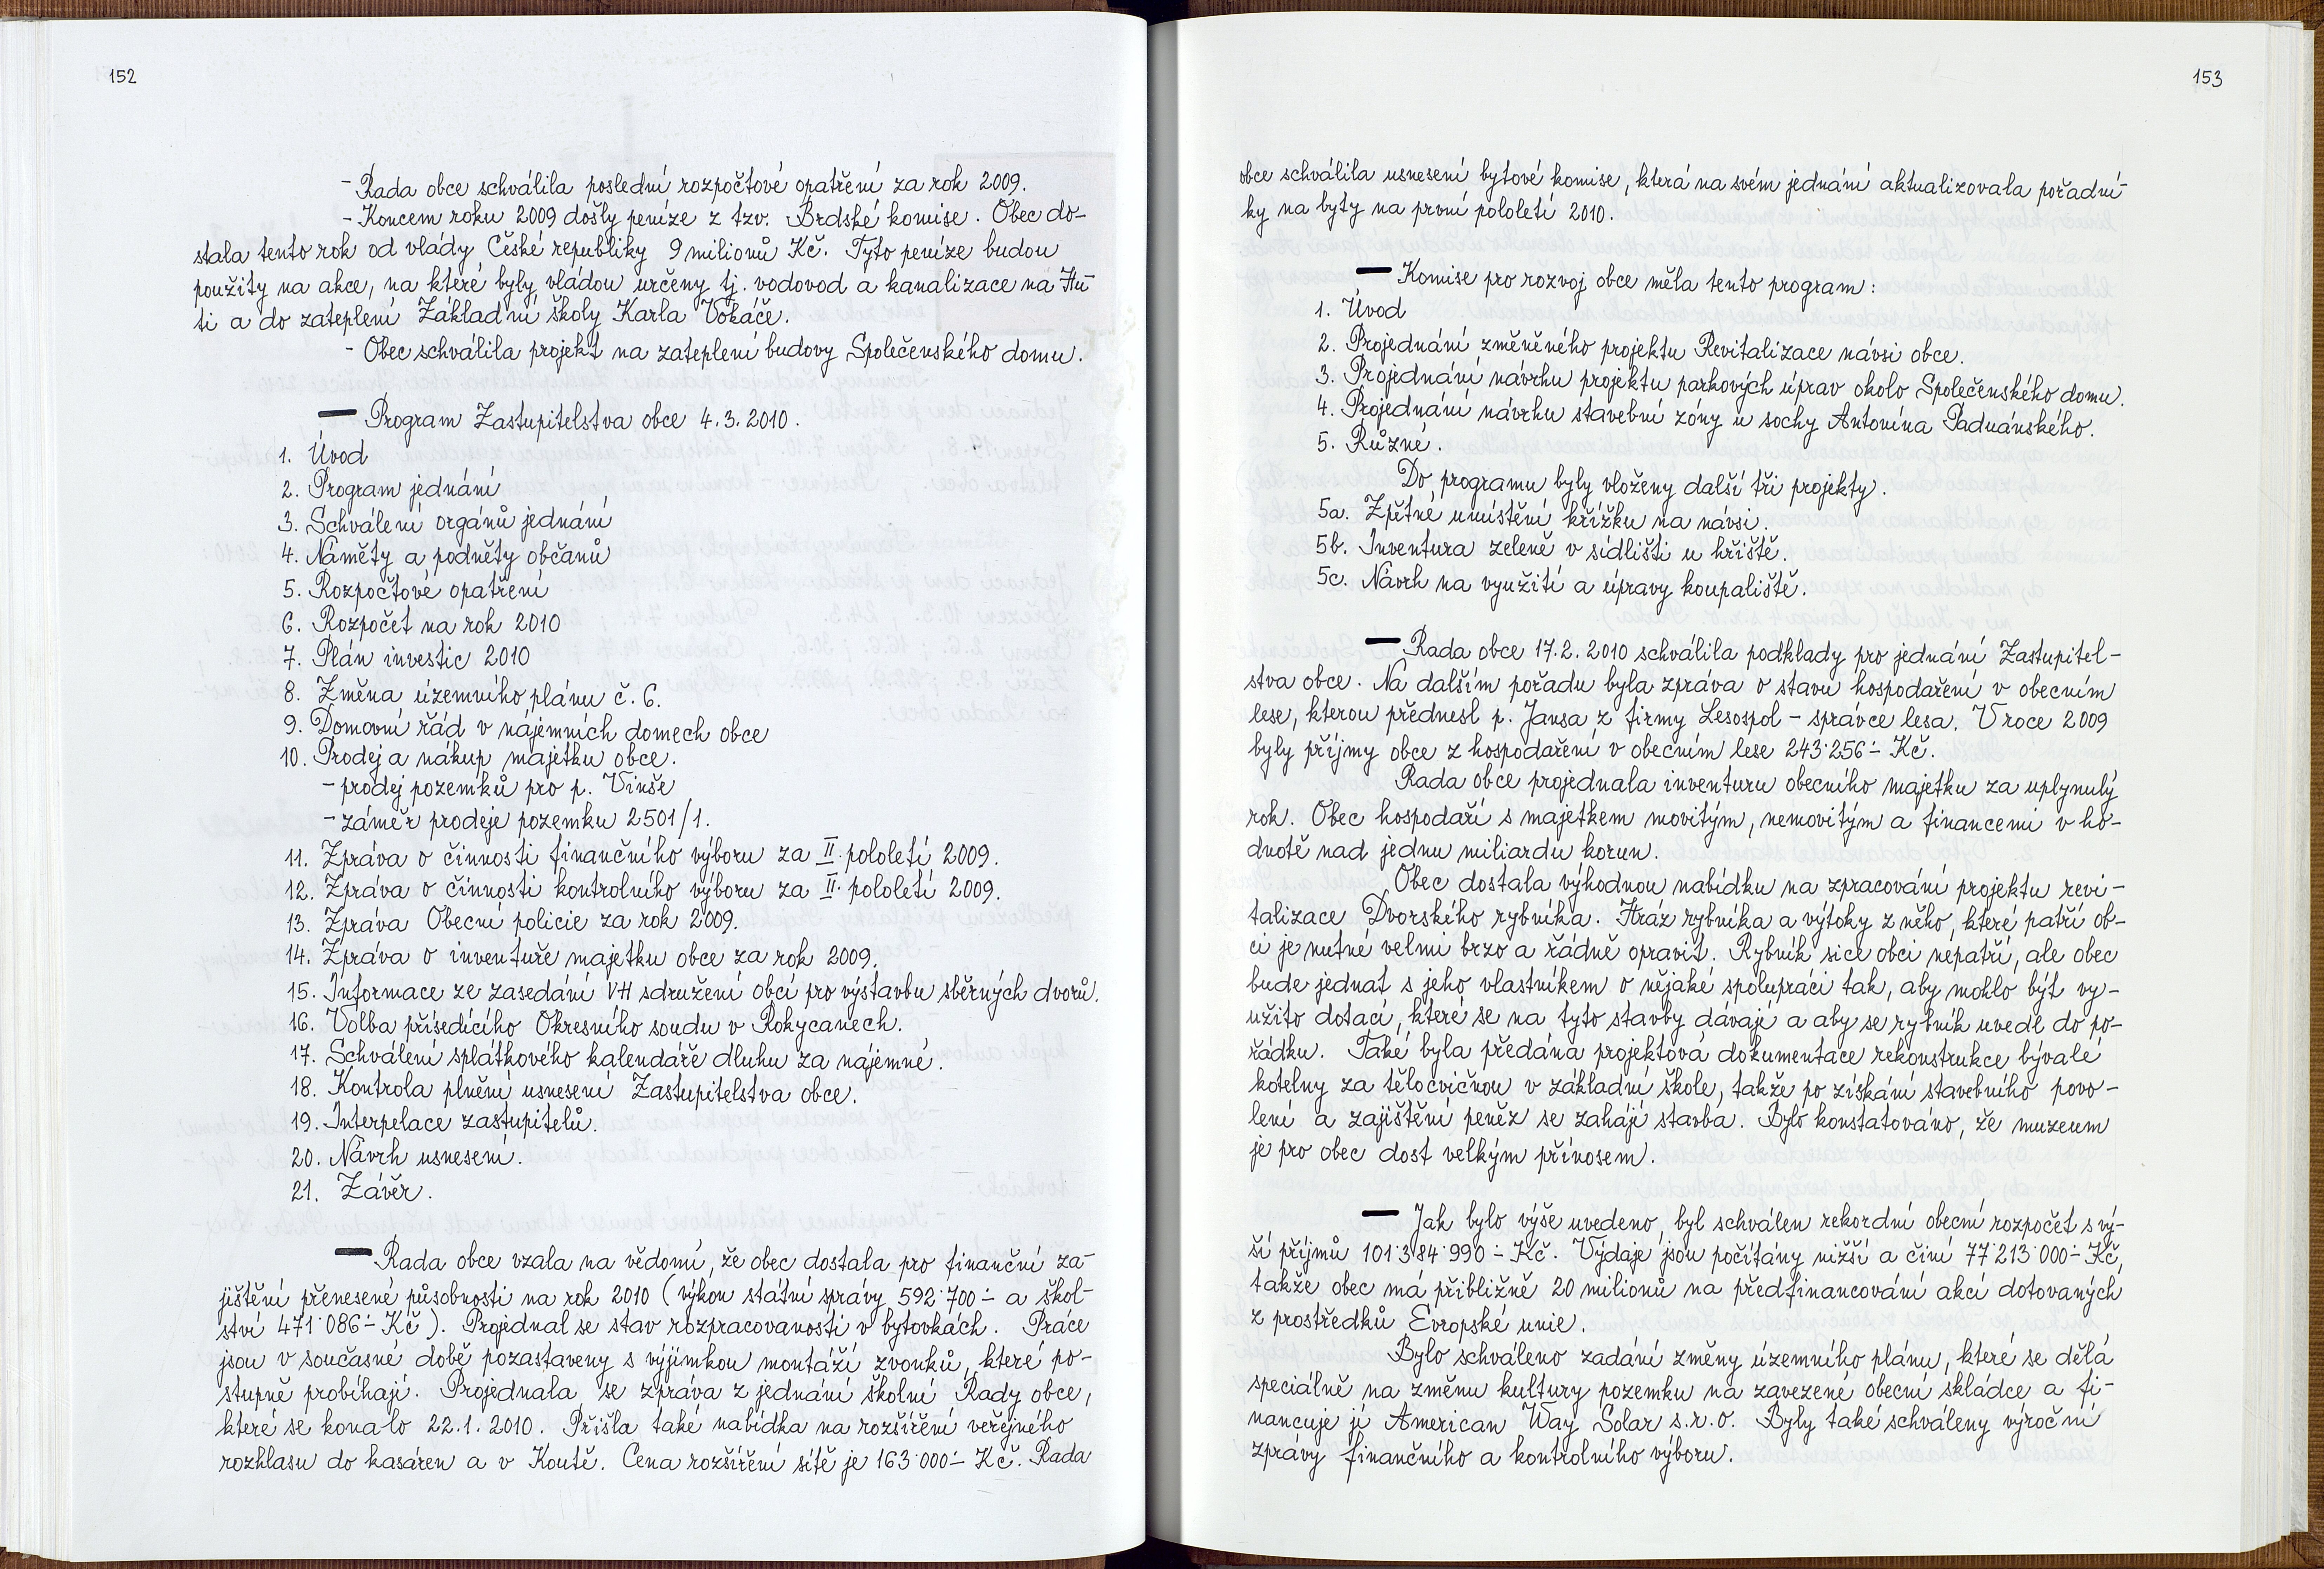 152
- Rada obce schválila poslední rozpočtové opatření za rok 2009.
- Koncem roku 2009 došly peníze z tzv. Brdské komise. Obec do-
stala tento rok od vlády České republiky 9 milionů Kč. Tyto peníze budou
použity na akce, na které byly vládou určeny tj. vodovod a kanalizace na Hu-
ti a do zateplení Základní školy Karla Vokáče.
- Obec schválila projekt na zateplení budovy Společenského domu.
— Program Zastupitelstva obce 4.3.2010.
1. Úvod
2. Program jednání
3. Schválení orgánů jednání
4. Náměty a podněty občanů
5. Rozpočtové opatření
6. Rozpočet na rok 2010
7. Plán investic 2010
8. Změna územního plánu č. 6.
9. Domovní řád v nájemních domech obce
10. Prodej a nákup majetku obce.
- prodej pozemků pro p. Vinše
- záměr prodeje pozemku 2501/1.
11. Zpráva o činnosti finančního výboru za II. pololetí 2009.
12. Zpráva o činnosti kontrolního výboru za II. pololetí 2009.
13. Zpráva Obecní policie za rok 2009.
14. Zpráva o inventuře majetku obce za rok 2009.
15. Informace ze zasedání VH sdružení obcí pro výstavbu sběrných dvorů.
16. Volba přísedícího Okresního soudu v Rokycanech.
17. Schválení splátkového kalendáře dluhu za nájemné.
18. Kontrola plnění usnesení Zastupitelstva obce.
19. Interpelace zastupitelů.
20. Návrh usnesení.
21. Závěr.
— Rada obce vzala na vědomí, že obec dostala pro finanční za-
jištění přenesené působnosti na rok 2010 (výkon státní správy 592˙700÷ a škol-
ství 471˙086÷ Kč). Projednal se stav rozpracovanosti v bytovkách. Práce
jsou v současné době pozastaveny s výjimkou montáží zvonků, které po-
stupně probíhají. Projednala se zpráva z jednání školní Rady obce,
které se konalo 22.1.2010. Přišla také nabídka na rozšíření veřejného
rozhlasu do kasáren a v Koutě. Cena rozšíření sítě je 163˙000÷ Kč. Rada
153
obce schválila usnesení bytové komise, která na svém jednání aktualizovala pořadní-
ky na byty na první pololetí 2010.
— Komise pro rozvoj obce měla tento program:
1. Úvod
2. Projednání změněného projektu Revitalizace návsi obce.
3. Projednání návrhu projektu parkových úprav okolo Společenského domu.
4. Projednání návrhu stavební zóny u sochy Antonína Paduánského.
5. Různé.
Do programu byly vloženy další tři projekty.
5a. Zpětné umístění křížku na návsi.
5b. Inventura zeleně v sídlišti u hřiště.
5c. Návrh na využití a úpravy koupaliště.
— Rada obce 17.2.2010 schválila podklady pro jednání Zastupitel-
stva obce. Na dalším pořadu byla zpráva o stavu hospodaření v obecním
lese, kterou přednesl p. Jansa z firmy Lesospol - správce lesa. V roce 2009
byly příjmy obce z hospodaření v obecním lese 243˙256÷ Kč.
Rada obce projednala inventuru obecního majetku za uplynulý
rok. Obec hospodaří s majetkem movitým, nemovitým a financemi v ho-
dnotě nad jednu miliardu korun.
Obec dostala výhodnou nabídku na zpracování projektu revi-
talizace Dvorského rybníka. Hráz rybníka a výtoky z něho, které patří ob-
ci je nutné velmi brzo a řádně opravit. Rybník sice obci nepatří, ale obec
bude jednat s jeho vlastníkem o nějaké spolupráci tak, aby mohlo být vy-
užito dotací, které se na tyto stavby dávají a aby se rybník uvedl do po-
řádku. Také byla předána projektová dokumentace rekonstrukce bývalé
kotelny za tělocvičnou v základní škole, takže po získání stavebního povo-
lení a zajištění peněz se zahájí stavba. Bylo konstatováno, že muzeum
je pro obec dost velkým přínosem.
— Jak bylo výše uvedeno, byl schválen rekordní obecní rozpočet s vý-
ší příjmů 101˙384˙990÷ Kč. Výdaje jsou počítány nižší a činí 77˙213˙000÷ Kč,
takže obec má přibližně 20 milionů na předfinancování akcí dotovaných
z prostředků Evropské unie.
Bylo schváleno zadání změny územního plánu, které se dělá
speciálně na změnu kultury pozemku na zavezené obecní skládce a fi-
nancuje jí American Way Solar s.r.o. Byly také schváleny výroční
zprávy finančního a kontrolního výboru.